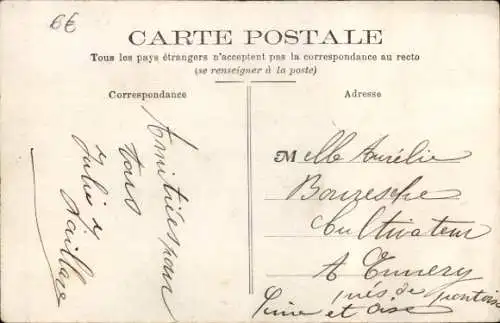 6€
CARTE POSTALE
Tous les pays étrangers n'acceptent pas la correspondance au recto
(se renseigner à la poste)
Correspondance
Adresse
Amitiées pour
tous
Julie
Melle Aurélie
Cultivateur
A Ennery
près de pontoise
Seine et oise